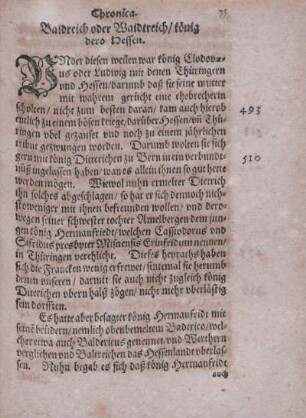 Chronica.
Baldreich oder Waldtreich / könig
dero Hessen.
VNder diesen weilen war könig Clodovæ-
us oder Ludwig mit denen Thüringern
vnd Hessen / darumb daß sie seine mutter
mit wahrem gerücht eine ehebrecherin
scholten / nicht zum besten daran / kam auch hierob
entlich zu einem bösen kriege / darüber Hessen / vñ Thü-
ringen vbel gezauset vnd noch zu einem jährlichen
tribut gezwungen worden. Darumb wolten sie sich
gern mit könig Ditterichen zu Bern in ein verbund-
nüß ingelassen haben / wan es allein ihnen so gut hette
werden mögen. Wiewol nuhn ermelter Dieterich
ihn solches abgeschlagen / so hat er sich dennoch nich-
stoweniger mit ihnen befreunden wollen / vnd dero-
wegen seiner schwester tochter Amelbergen dem jun-
gen könig Hermanfriedt / welchen Cassiodorus vnd
Sifridus presbyter Misnensis Erinfeidum nennen /
in Thüringen verehlicht. Dieses heyrahts haben
sich die Francken wenig erfrewet / sintemal sie herumb
denen vnseren / darmit sie auch nicht zugleich könig
Ditterichen vbern halß zögen / nicht mehr vberlästig
sein dorfften.
Es hatte aber besagter könig Hermanfridt mit
seinē brüdern / nemlich obenbemeltem Baderico / wel-
cher etwa auch Baldericus genennet / vnd Warthern
verglichen vnd Baltreichen das Hessenlandt vberlas-
sen. Nuhn begab es sich daß könig Hermanfridt
auch
493
510